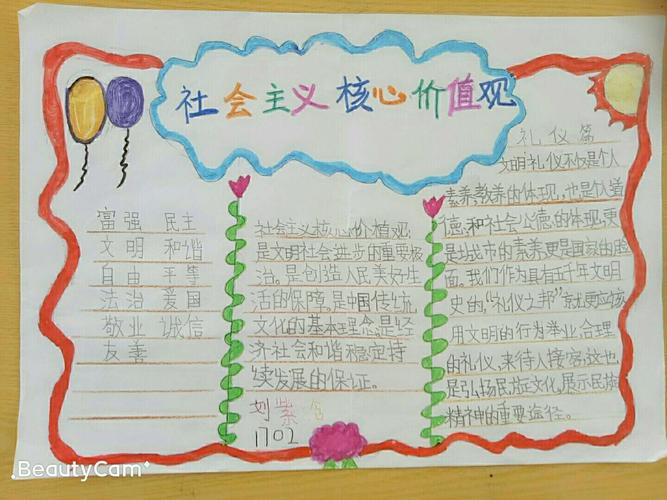 社会主义核心价值观
富强 民主
文明 和谐
自由 平等
法治 爱国
敬业 诚信
友善
社会主义核心价值观,
是文明社会进步的重要极
治。是创造人民美好生
活的保障。是中国传统
文化的基本理念是经
济社会和谐稳定持
续发展的保证。
刘紫
1702
礼仪篇
文明礼仪不仅是个人
素养、教养的体现,也是个人道
德、和社会公德的体现,更
是城市的素养更是国家的脸
面。我们作为具有五千年文明
史的,“礼仪之邦”就更应该
用文明的行为举止,合理
的礼仪,来待人接客,这也
是弘扬民族文化,展示民族
精神的重要途径。
BeautyCam